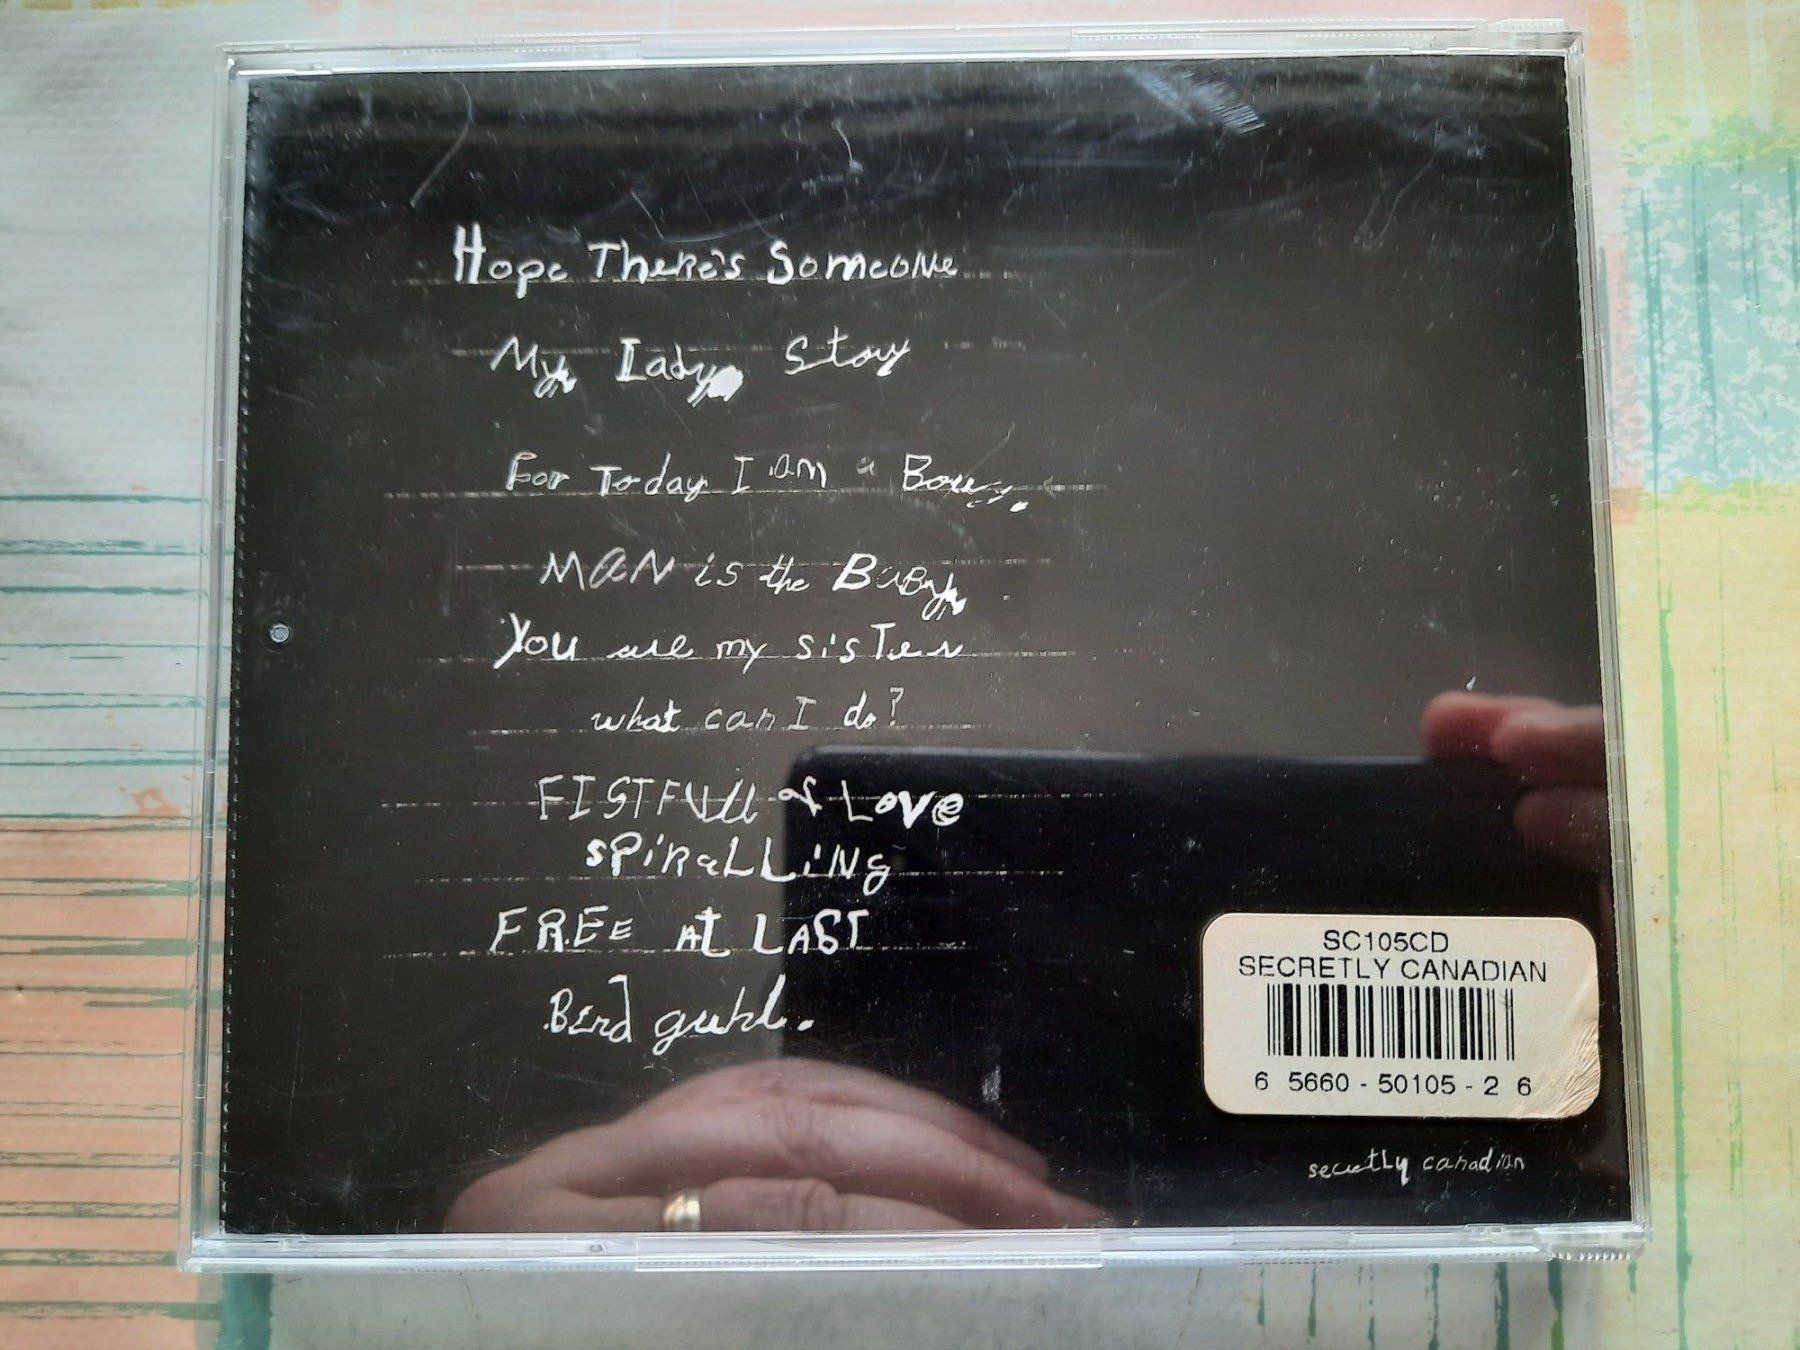 Hope There's Someone
My Lady Stoy
For Today I am a Boy.
MaN is the BaBy
You are my sisTer
what can I do?
FISTFUll of Love
sPiRaLLiNg
FREE At LAST
BErd guhl.
SC105CD
SECRETLY CANADIAN
6 5660 - 50105 - 2 6
secretLy canadian